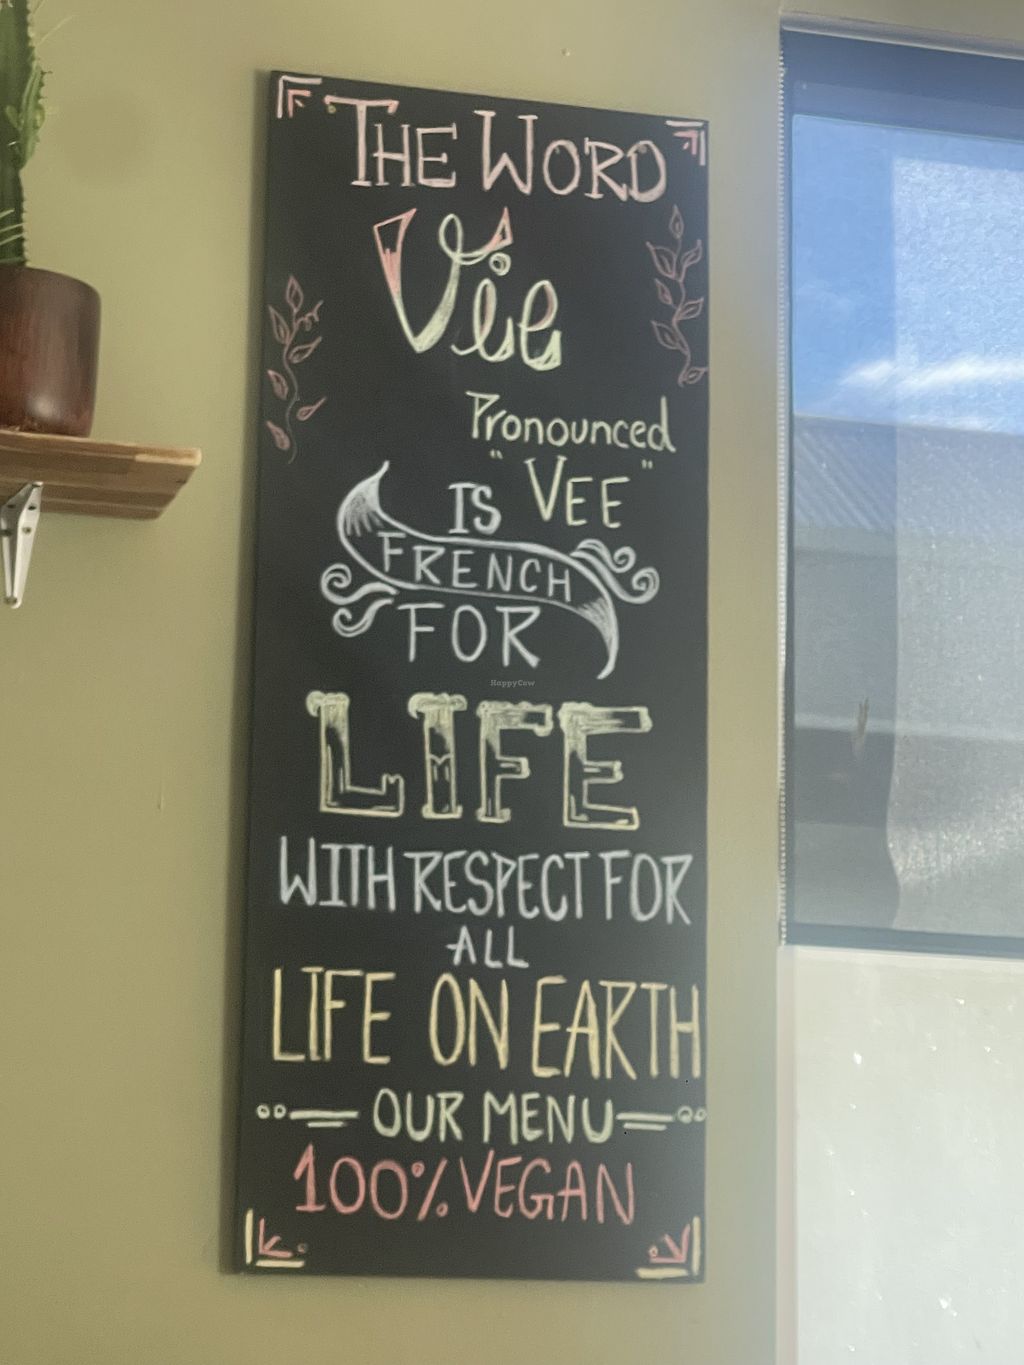 THE WORD
Vie
Pronounced
"VEE"
IS
FRENCH
FOR
HappyCow
LIFE
WITH RESPECT FOR
ALL
LIFE ON EARTH
OUR MENU
100% VEGAN